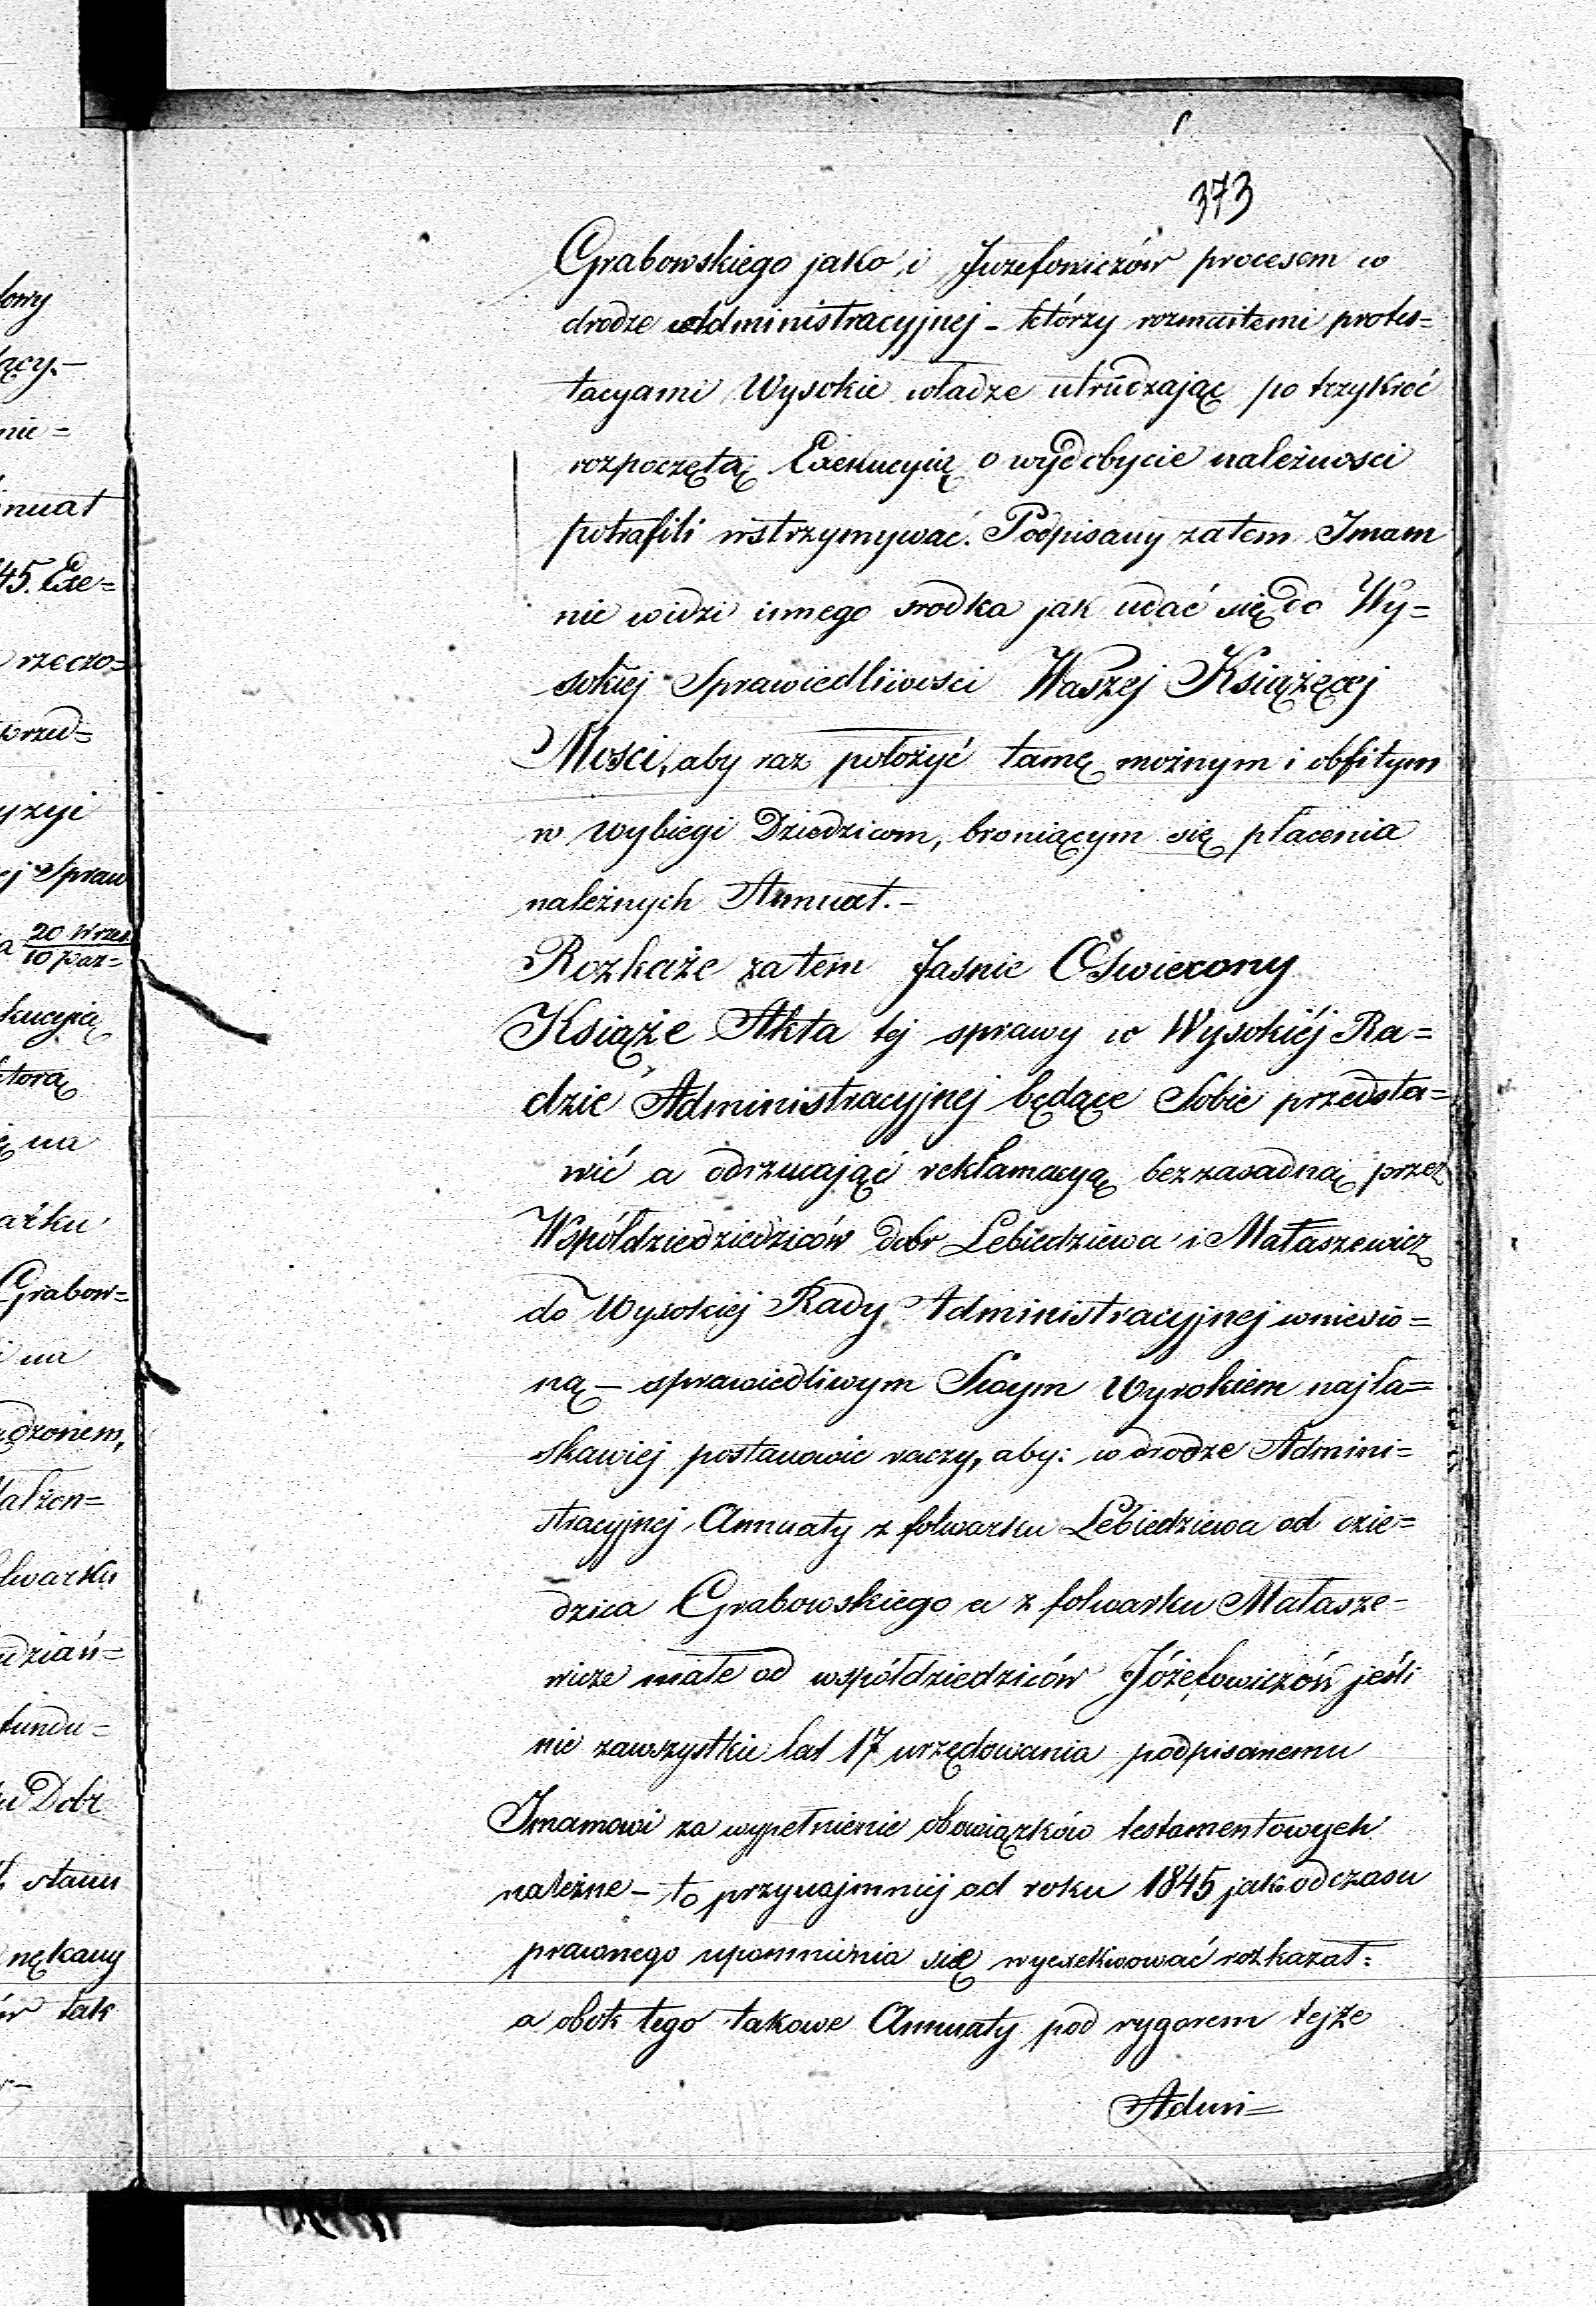 373
Grabowskiego jako i Juzefowiczów procesem w
drodze Administracyjnej – którzy rozmaitemi protes=
tacyami Wysokie władze utrudzając po trzykroć
rozpoczętą Exekucyią o wydobycie należności
potrafili wstrzymywać. Podpisany zatem Imam
nie widzi innego srodka jak udać się do Wy=
sokiej Sprawiedliwosci Waszej Książęcej
Mosci, aby raz położyć tamę możnym i obfitym
w wybiegi Dziedzicom, broniącym się płacenia
należnych Annuat. –
Rozkaże zatem Jasnie Oświecony
Książe Akta tej sprawy w Wysokiéj Ra=
dzie Administracyjnej będące Sobie przedsta=
wić a odrzucając reklamacyą bezzasadną przez
Współdziedziedziców dobr Lebiedziewa i Małaszewicz
do Wysokiej Rady Administracyjnej wniesio=
ną – sprawiedliwym Swym Wyrokiem najła=
skawiej postanowic raczy, aby: w drodze Admini=
stracyjnej Annuaty z folwarku Lebiedziewa od dzie=
dzica Grabowskiego a z folwarku Małasze=
wicze małe od współdziedziców Józefowiczów jeśli
nie zawszystkie lat 17 urzędowania podpisanemu
Imamowi za wypełnienie obowiązków testamentowych
należne – to przynajmniej od roku 1845 jako od czasu
prawnego upomnienia się wyexekwować rozkazał:
a obok tego takowe Annuaty pod rygorem tejże
Admi=
lowy
nie=
nuat
45. Exe=
rzeczo=
przed=
yzyi
ej Spraw
20 Wrześ
10 paź=
kucyią
którą
na
arku
Grabow=
i na
ądzonem,
łwarku
fundu=
Dobr
stanu
nękany
tak